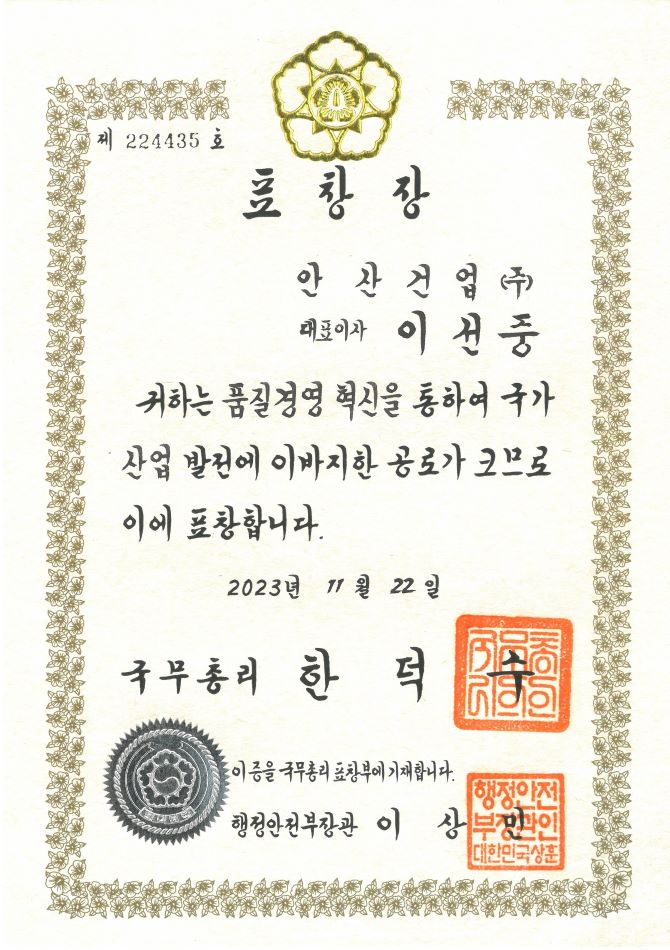 제 224435 호
표창장
안산건업(주)
대표이사 이선중
귀하는 품질경영 혁신을 통하여 국가
산업 발전에 이바지한 공로가 크므로
이에 표창합니다.
2023년 11월 22일
국무총리 한덕수
이 증을 국무총리 표창부에 기재합니다.
행정안전부장관 이상민
행정안전
부장관인
대한민국상훈